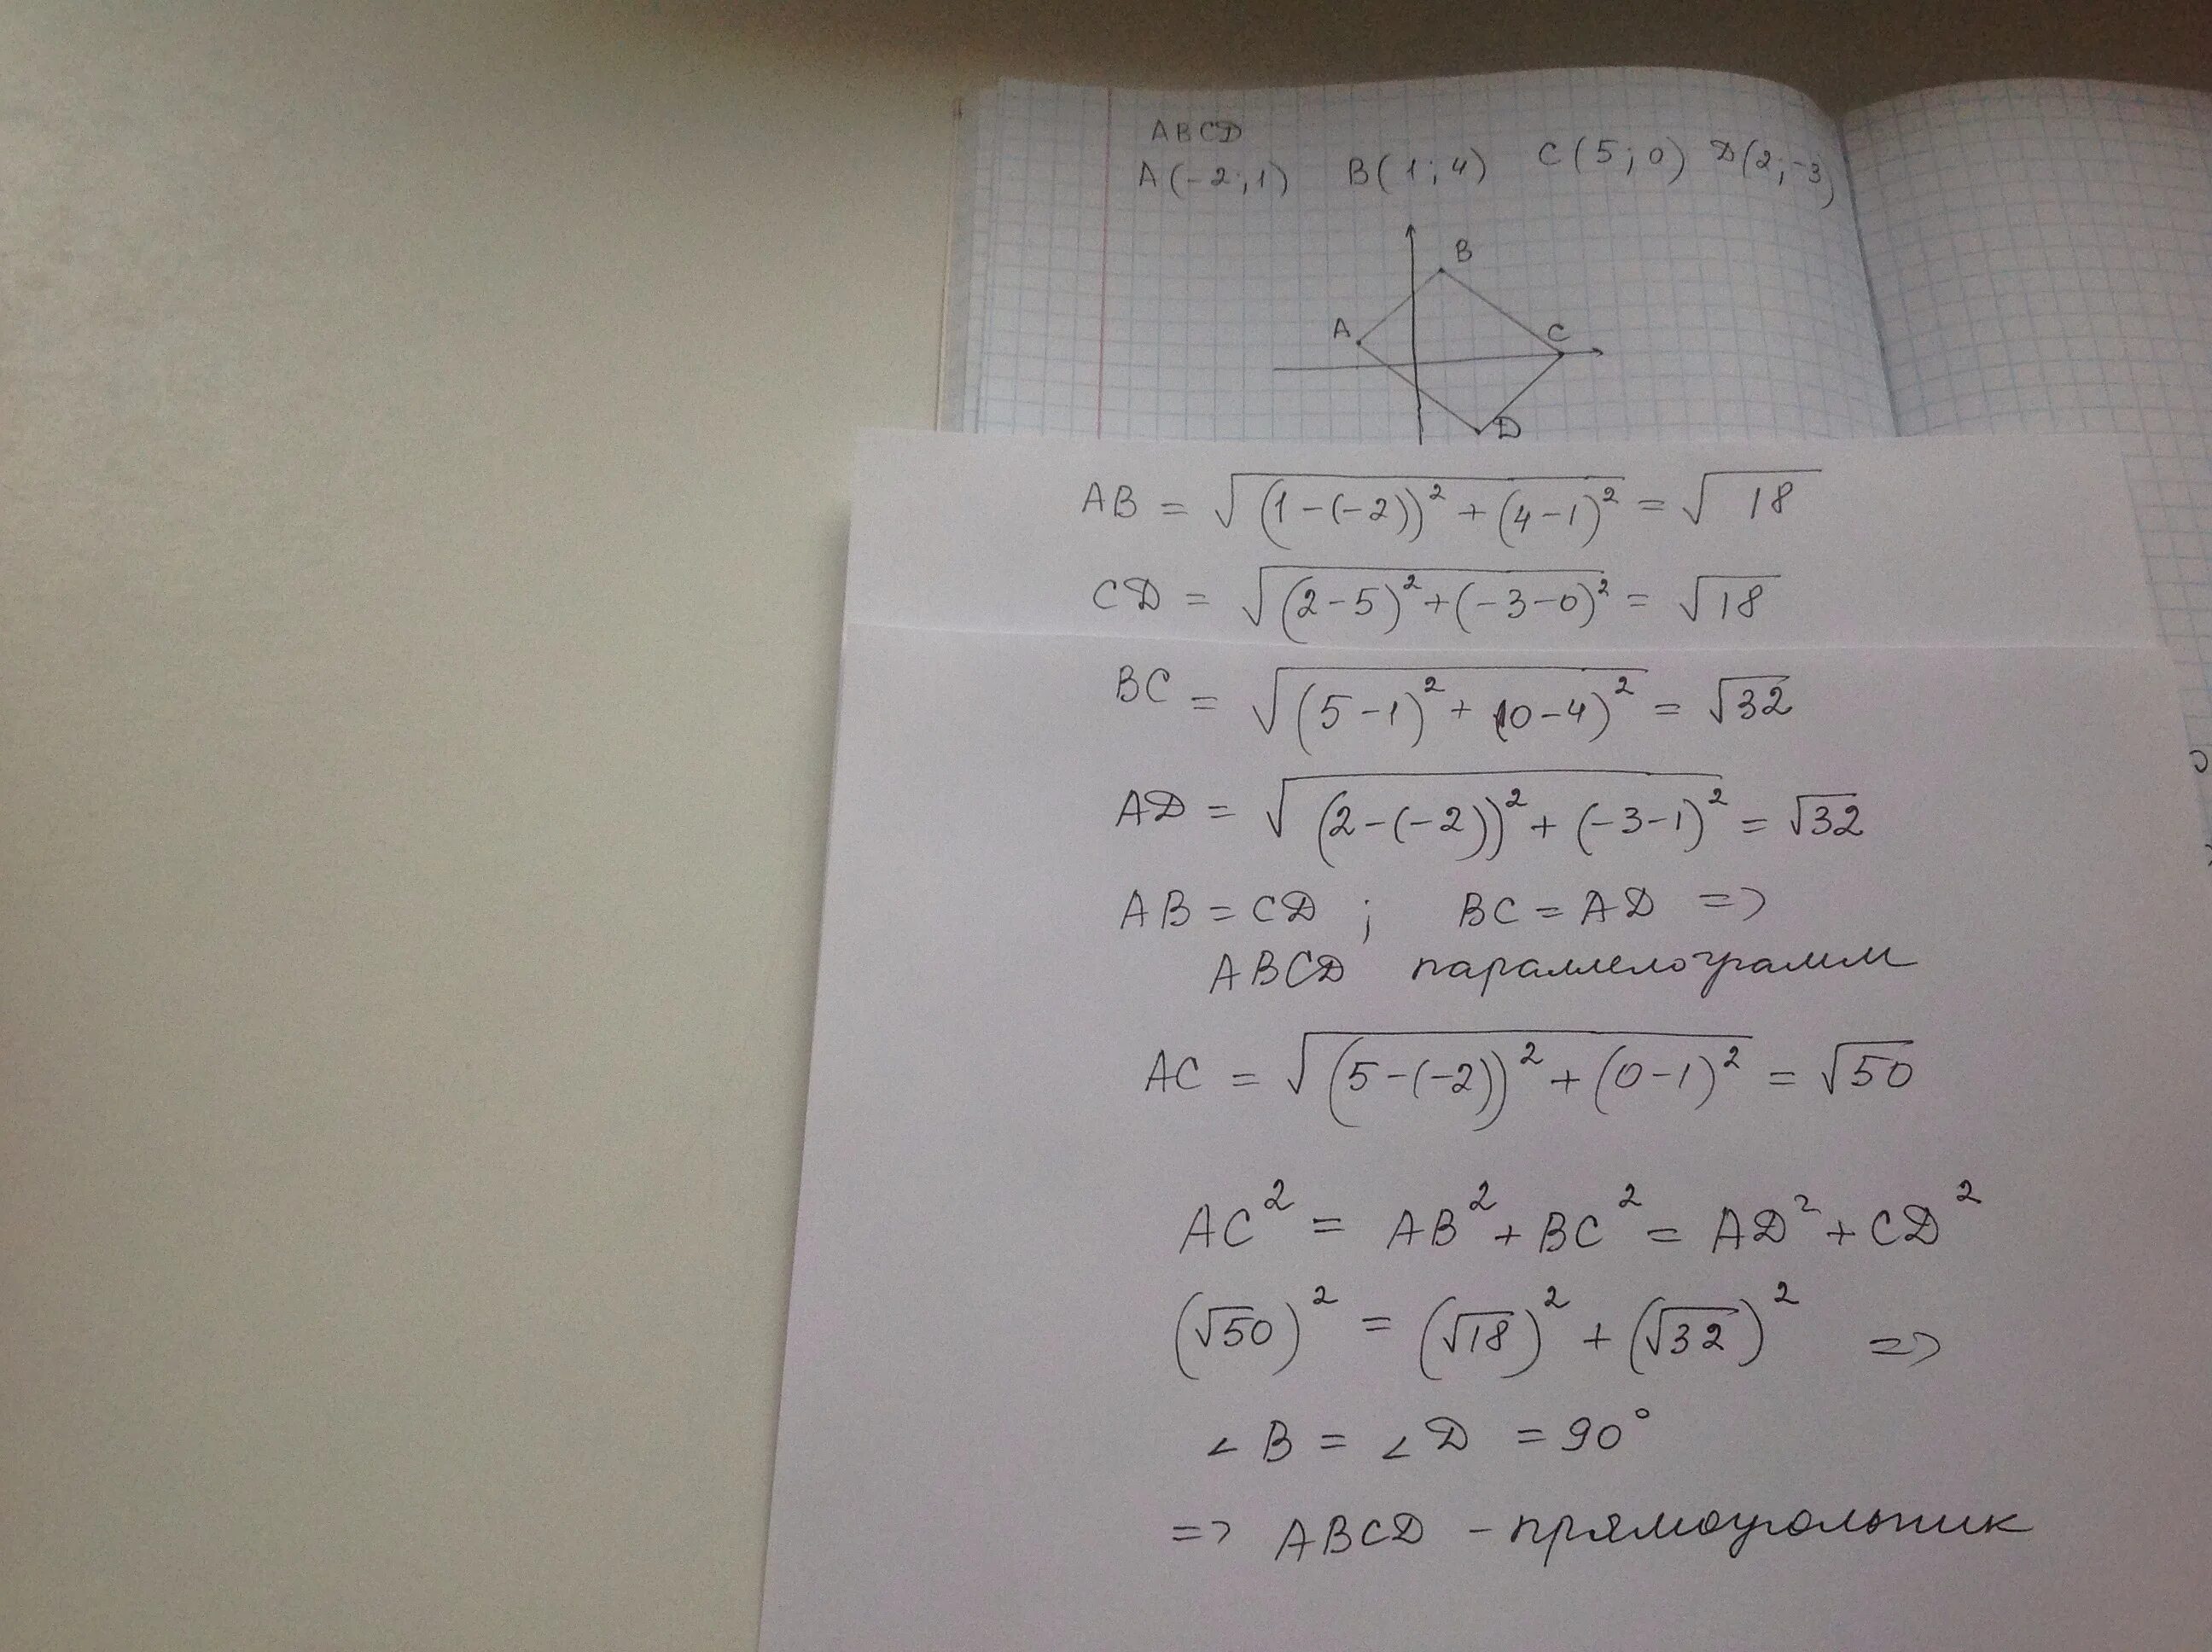 ABCD
A(-2;1) B(1;4) C(5;0) D(2;-3)
B
A
C
D
AB = √((1-(-2))² + (4-1)²) = √18
CD = √((2-5)² + (-3-0)²) = √18
BC = √((5-1)² + (0-4)²) = √32
AD = √((2-(-2))² + (-3-1)²) = √32
AB = CD ; BC = AD =>
ABCD параллелограмм
AC = √((5-(-2))² + (0-1)²) = √50
AC² = AB² + BC² = AD² + CD²
(√50)² = (√18)² + (√32)² =>
∠B = ∠D = 90°
=> ABCD - прямоугольник